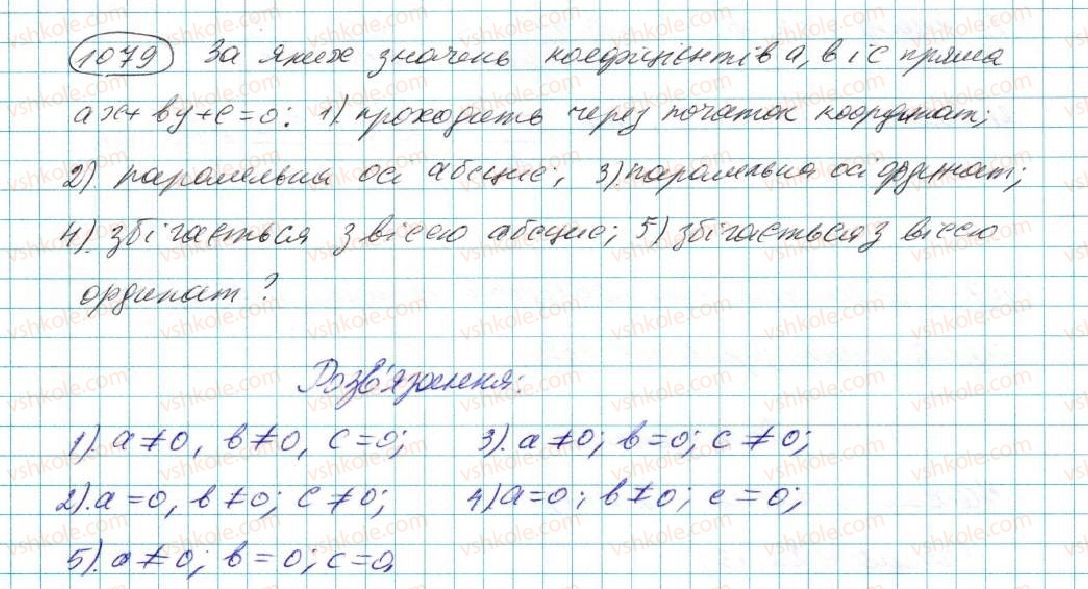 1079 За яких значень коефіцієнтів a, b і c пряма
ax + by + c = 0: 1). проходить через початок координат;
2). паралельна осі абсцис; 3). паралельна осі ординат;
4). збігається з віссю абсцис; 5) збігається з віссю
ординат?
Розв'язання:
1). a ≠ 0, b ≠ 0, c = 0; 3). a ≠ 0; b = 0; c ≠ 0;
2). a = 0, b ≠ 0; c ≠ 0; 4) a = 0; b ≠ 0; c = 0;
5). a ≠ 0; b = 0; c = 0.
vshkole.com